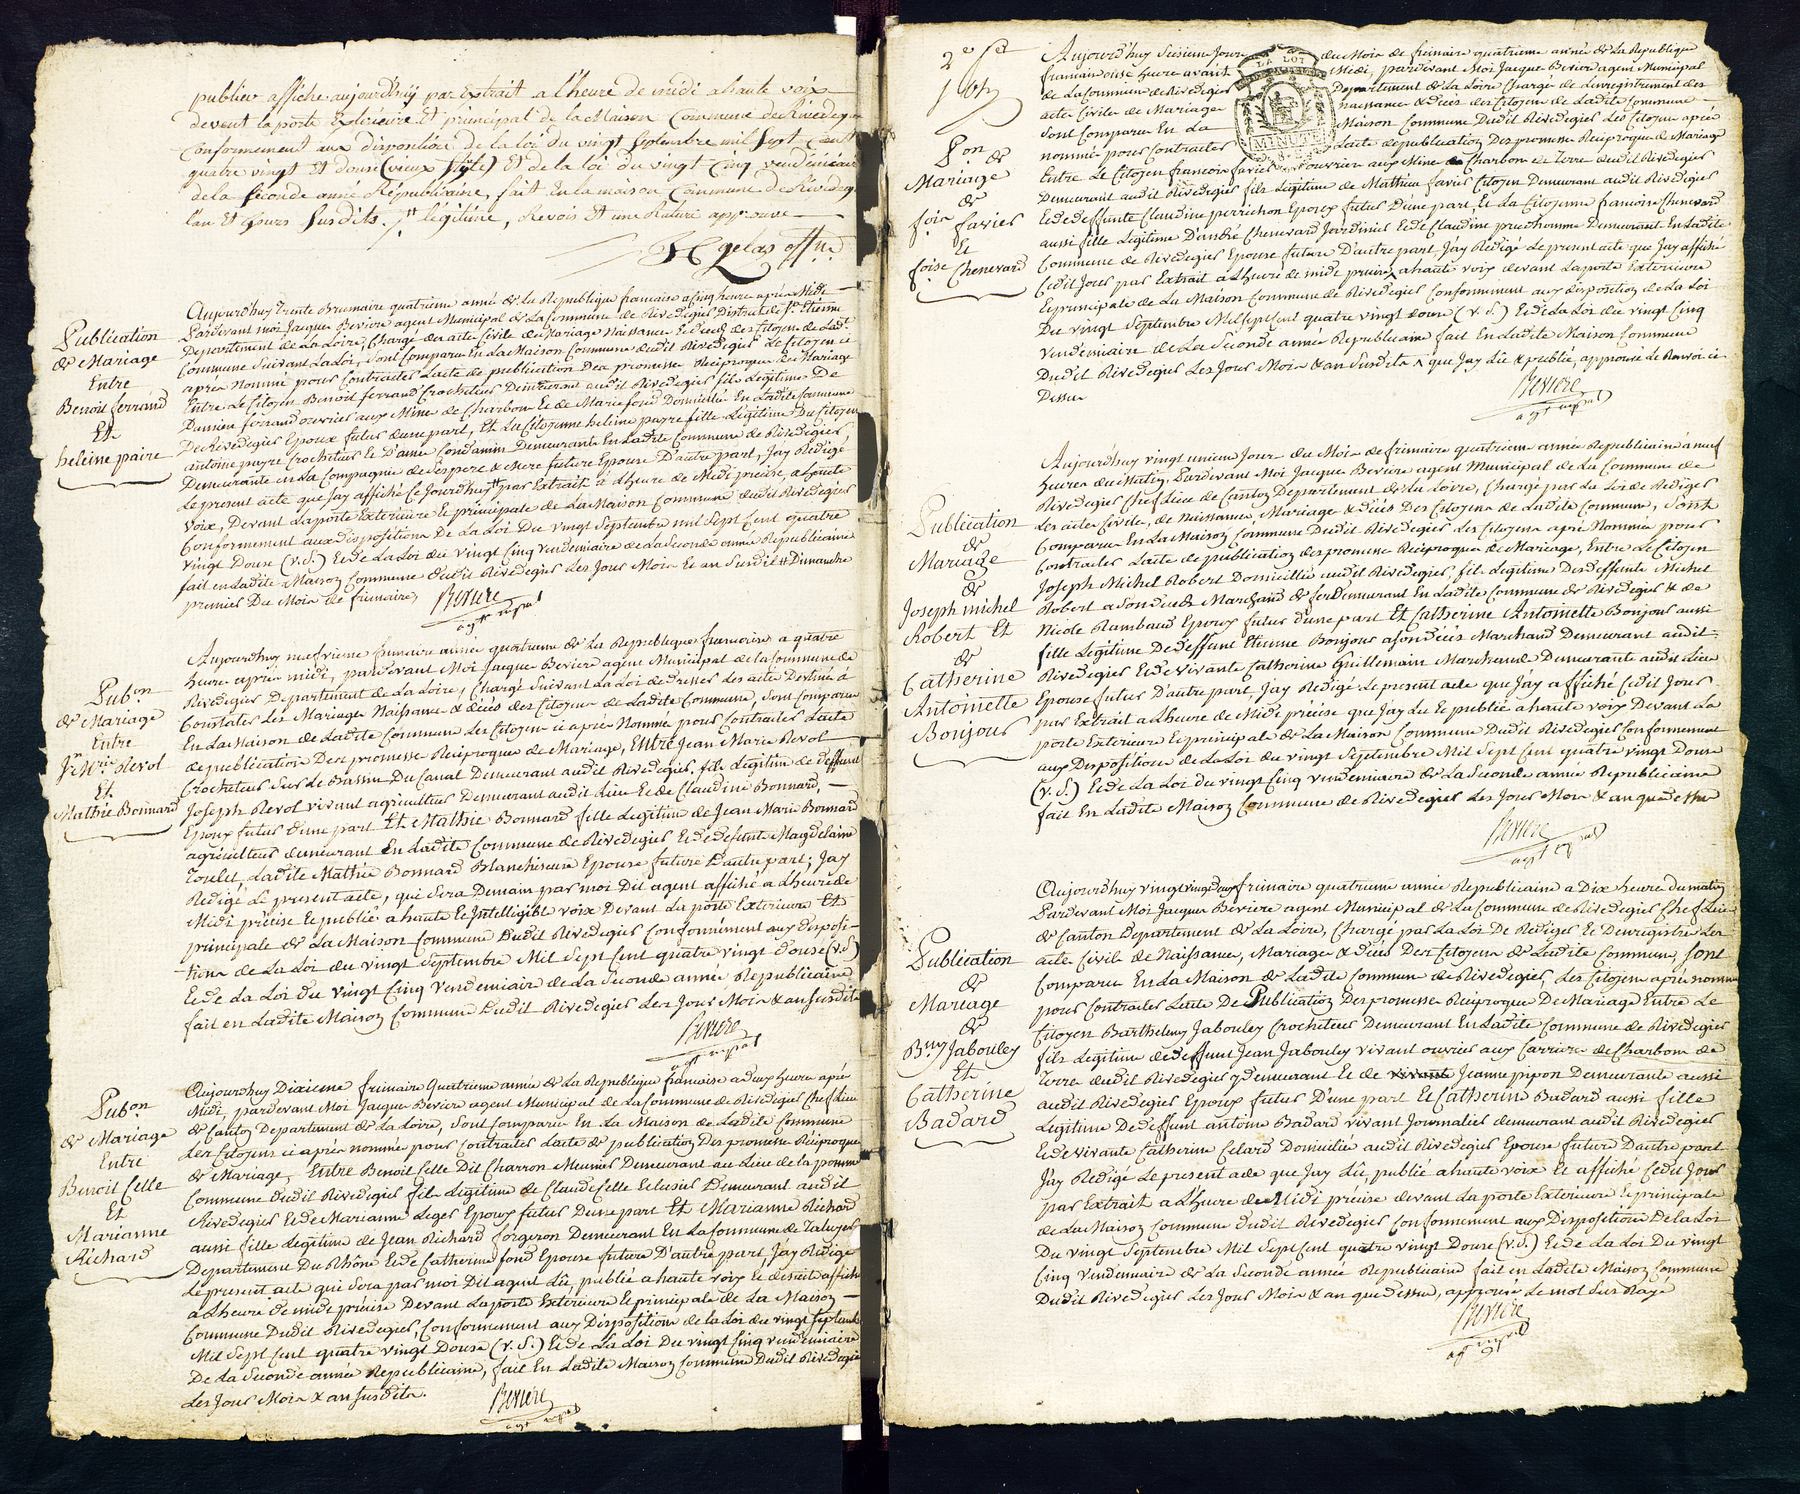 publier affiché aujourd'huy par extrait a l'heure de midi a haute voix
devent la porte Exterieure Et principal de la Maison Commune de Rivedegier
Conformement aux disposition de la loi du vingt Septembre mil Sept Cent
quatre vingt Et douse (vieux stile) Et de la loi du vingt Cinq vendemiaire
de la Seconde anné Républicaine, fait En la maison Commune de Rivedegier
l'an Et jours Susdits. legitime, Revois Et une Rature approuvé
Publication
de Mariage
Entre
Benoit ferrand
Et
heleine paire
Aujourdhuy trente Brumaire quatrieme année de la Republique francaise a Cinq heure après Midi
Pardevant moi Jacque Beviere agent Municipal de la Commune de Rivedegier, District de St. Etienne
Departement de la Loire, Chargé des acte Civile de Mariage Naissance Et deces des Citoyen de Ladte.
Commune Suivant La Loi, Sont Comparu En La Maison Commune dudit Rivedegier Le Citoyen ci
après Nommé pour Contracter Lacte de publication des promesse Reciproque de Mariage
Entre Le Citoyen Benoit ferrand Crocheteur Demeurant audit Rivedegier fils Legitime De
Damien ferrand ouvrier aux Mine de Charbon Et de Marie fond Domiciliée En Ladite Commune
De Rivedegier Epoux futur dune part, Et La Citoyenne heleine payre fille Legitime Du Citoyen
antoine payre Crocheteur Et D'anne Condamin Demeurante En Ladite Commune de Rivedegier
Demeurante en La Compagnie de ses pere & mere future Epouse D'autre part, Jay Redigé
Le present acte que Jay affiché Ce Jourdhuy # par Extrait a Lheure de Midi précise, a haute
Voix, Devant La porte Exterieure Et principale de La Maison Commune dudit Rivedegier
Conformement aux disposition De La Loi Du vingt Septembre mil Sept Cent quatre
vingt Douse (v. S.) Et de La Loi du vingt Cinq vendemiaire de La Seconde année Republicaine
fait en Ladite Maison Commune dudit Rivedegier Les Jour Moi Et an Susdit # Dimanche
premier Du Moi de frimaire,
Beviere
agt mpal
Pubon
de Mariage
Entre
Jn Mrie Revol
Et
Mathie Bonnard
Aujourdhuy neufvieme frimaire année quatrieme de La Republique francaise a quatre
heure après midi, pardevant Moi Jacque Beviere agent Municipal de la Commune de
Rivedegier Departement de La Loire, Chargé Suivant La Loi de dresser Les acte Destiné à
Constater Les Mariage Naissance & décès des Citoyen de Ladite Commune, Sont Comparu
En La Maison de Ladite Commune Les Citoyen ci après Nommé pour Contracter Lacte
de publication Des promesse Reciproque de Mariage, Entre Jean Marie Revol
Crocheteur Sur Le Bassin Du Canal Demeurant audit Rivedegier, fils Legitime de deffunt
Joseph Revol vivant agriculteur Demeurant audit Lieu Et de Claudine Bonnard,
Epoux futur d'une part Et Mathie Bonnard fille Legitime de Jean Marie Bonnard
agriculteur demeurant En Ladite Commune de Rivedegier Et de defunte Magdelaine
Ladite Mathie Bonnard Blanchiseuse Epouse future D'autre part, Jay
Redigé Le present acte, qui Sera Demain par moi Dit agent affiché a Lheure de
Midi précise Et publié a haute Et Intelligible voix Devant La porte Exterieure Et
principale de La Maison Commune Dudit Rivedegier Conformément aux disposi-
tions de La Loi du vingt Septembre Mil Sept Cent quatre vingt Douse (v. S.)
Et de La Loi Du vingt Cinq Vendemiaire de La Seconde année Republicaine
fait en Ladite Maison Commune Dudit Rivedegier Les Jour Moi & an Susdit
Beviere
agt mpal
Pubon
de Mariage
Entre
Benoit Celle
Et
Marianne
Richard
Aujourdhuy Dixieme frimaire Quatrieme année de La Republique francaise a deux heure après
Midi, pardevant Moi Jacque Beviere agent Municipal de La Commune de Rivedegier Chef Lieu
de Canton Departement de La Loire, Sont Comparu En La Maison de Ladite Commune
Les Citoyens ci après nommé pour Contracter Lacte de publication Des promesse Reciproque
de Mariage, Entre Benoit Celle Dit Charron Meunier Demeurant au Lieu de la pomme
Commune dudit Rivedegier fils Legitime de Claude Celle Eclusier Demeurant audit
Rivedegier Et de Marianne Leger Epoux futur Dune part Et Marianne Richard
aussi fille Legitime de Jean Richard forgeron Demeurant En La Commune de Taluyer
Departement Du Rhône Et de Catherine fond Epouse future D'autre part, Jay Redigé
Le present acte qui Sera par moi Dit agent Lû, publié a haute voix Et desuite affiché
a Lheure de midi précise Devant La porte Extérieure Et principale de La Maison
Commune Dudit Rivedegier, Conformement aux Disposition de la Loi du vingt Septembre
Mil Sept Cent quatre vingt Douse (v. S.) Et de La Loi Du vingt Cinq vendemiaire
De La Seconde année Republicaine, fait En Ladite Maison Commune Dudit Rivedegier
Les Jour Moi & an Susdits.
Beviere
agt mpal
2e
Pon
de
Mariage
de
fois favier
Et
foise Chenevard
LA LOI
MINUTE
Aujourdhuy Seisieme Jour du Moi de frimaire quatrieme année de La Republique
francaise onse heure avant Midi, pardevant Moi Jacque Beviere agent Municipal
de La Commune de Rivedegier Departement de La Loire Chargé de Lenregistrement des
acte Civile de Mariage naissance & décès des Citoyen de Ladite Commune
Sont Comparu En La Maison Commune Dudit Rivedegier Les Citoyen après
nommé pour Contracter Lacte de publication Des promesse Reciproque de Mariage
Entre Le Citoyen francois favier ouvrier aux Mine de Charbon de Terre dudit Rivedegier
Demeurant audit Rivedegier fils Legitime de Mathieu favier Citoyen Demeurant audit Rivedegier
Et de deffunte Claudine perrichon Epoux futur D'une part Et La Citoyenne francoise Chenevard
aussi fille Legitime D'andré Chenevard Jardinier Et de Claudine prudhomme Demeurant En Ladite
Commune de Rivedegier Epouse future D'autre part Jay Redigé Le present acte que Jay affiché
Cedit Jour par Extrait a Lheure de midi précise a haute voix devant La porte Exterieure
Et principale de La Maison Commune de Rivedegier Conformement aux disposition de La Loi
Du vingt Septembre Mil Sept Cent quatre vingt douse (v. S.) Et de La Loi du vingt Cinq
vendemiaire de La Seconde année Republicaine fait En Ladite Maison Commune
Dudit Rivedegier Les Jour Moi & an Susdit que Jay Lû & publié, approuvé Le Renvoi ci
Dessus
Beviere
agt mpal
Publication
de
Mariage
de
Joseph michel
Robert Et
de
Catherine
Antoinette
Bonjour
Aujourdhuy vingt unieme Jour du Moi de frimaire quatrieme année Republicaine a neuf
heure du Matin, Pardevant Moi Jacque Beviere agent Municipal de La Commune de
Rivedegier Chef Lieu de Canton Departement de La Loire, Chargé par La Loi de Rediger
Les acte Civile, de Naissance, Mariage & décès Des Citoyen de Ladite Commune, Sont
Comparu En La Maison Commune Dudit Rivedegier Les Citoyen après Nommé pour
Contracter Lacte de publication des promesse Reciproque de Mariage, Entre Le Citoyen
Joseph Michel Robert Domicilié audit Rivedegier, fils Legitime Des deffunts Michel
Robert a Son decès Marchand de fer Demeurant En Ladite Commune de Rivedegier & de
Nicole Rambaud Epoux futur dune part Et Catherine Antoinette Bonjour aussi
fille Legitime De deffunt Etienne Bonjour a Son décès Marchand Demeurant audit
Rivedegier Et de vivante Catherine Guillemain Marchande Demeurante audit Lieu
Epouse futur D'autre part, Jay Redigé Le present acte que Jay affiché Cedit Jour
par Extrait a Lheure de Midi précise que Jay Lu Et publié a haute voix Devant La
porte Exterieure Et principale de La Maison Commune Dudit Rivedegier Conformement
aux Disposition de La Loi du vingt Septembre Mil Sept Cent quatre vingt Douse
(v. S.) Et de La Loi du vingt Cinq vendemiaire de La Seconde année Republicaine
fait En Ladite Maison Commune de Rivedegier Les Jour Moi & an que dessus
Beviere
agt mpal
Publication
de
Mariage
de
Bmy Jabouley
Et
Catherine
Badard
Aujourdhuy vingt deux frimaire quatrieme année Republicaine a Dix heure du matin
Pardevant Moi Jacque Beviere agent Municipal de La Commune de Rivedegier Chef Lieu
de Canton Departement de La Loire, Chargé par La Loi De Rediger Et Denregistrer Les
acte Civile de Naissance, Mariage & décès Des Citoyen de Ladite Commune, Sont
Comparu En La Maison de Ladite Commune de Rivedegier, Les Citoyen après nommé
pour Contracter Lacte De Publication Des promesse Reciproque De Mariage Entre Le
Citoyen Barthelemy Jabouley Crocheteur Demeurant En Ladite Commune de Rivedegier
fils Legitime de deffunt Jean Jabouley vivant ouvrier aux Carriere de Charbon de
Terre dudit Rivedegier y demeurant Et de vivante Jeanne pipon Demeurante aussi
audit Rivedegier Epoux futur D'une part Et Catherine Badard aussi fille
Legitime De deffunt antoine Badard vivant Journalier demeurant audit Rivedegier
Et de vivante Catherine Celard Domiciliée audit Rivedegier Epouse future Dautre part
J'ay Redigé Le present acte que Jay Lû, publié a haute voix Et affiché Cedit Jour
par Extrait a Lheure de Midi précise devant La porte Extérieure Et principale
de La Maison Commune Dudit Rivedegier Conformement aux Disposition De La Loi
Du vingt Septembre Mil Sept Cent quatre vingt Douse (v. S.) Et de La Loi Du vingt
Cinq vendemiaire de La Seconde année Republicaine fait en Ladite Maison Commune
Dudit Rivedegier Les Jour Moi & an que dessus, approuvé Le mot Sus Rayé
Beviere
agt mpal